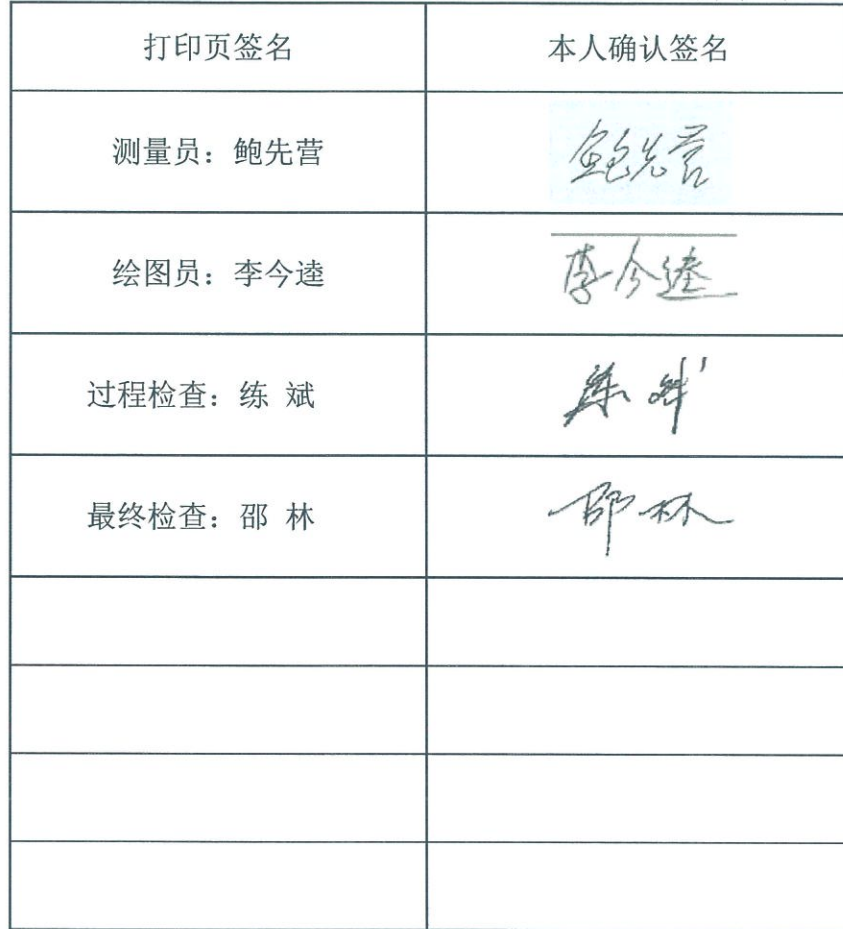 打印页签名 本人确认签名
测量员：鲍先营 鲍先营
绘图员：李今逵 李今逵
过程检查：练 斌 练斌
最终检查：邵 林 邵林